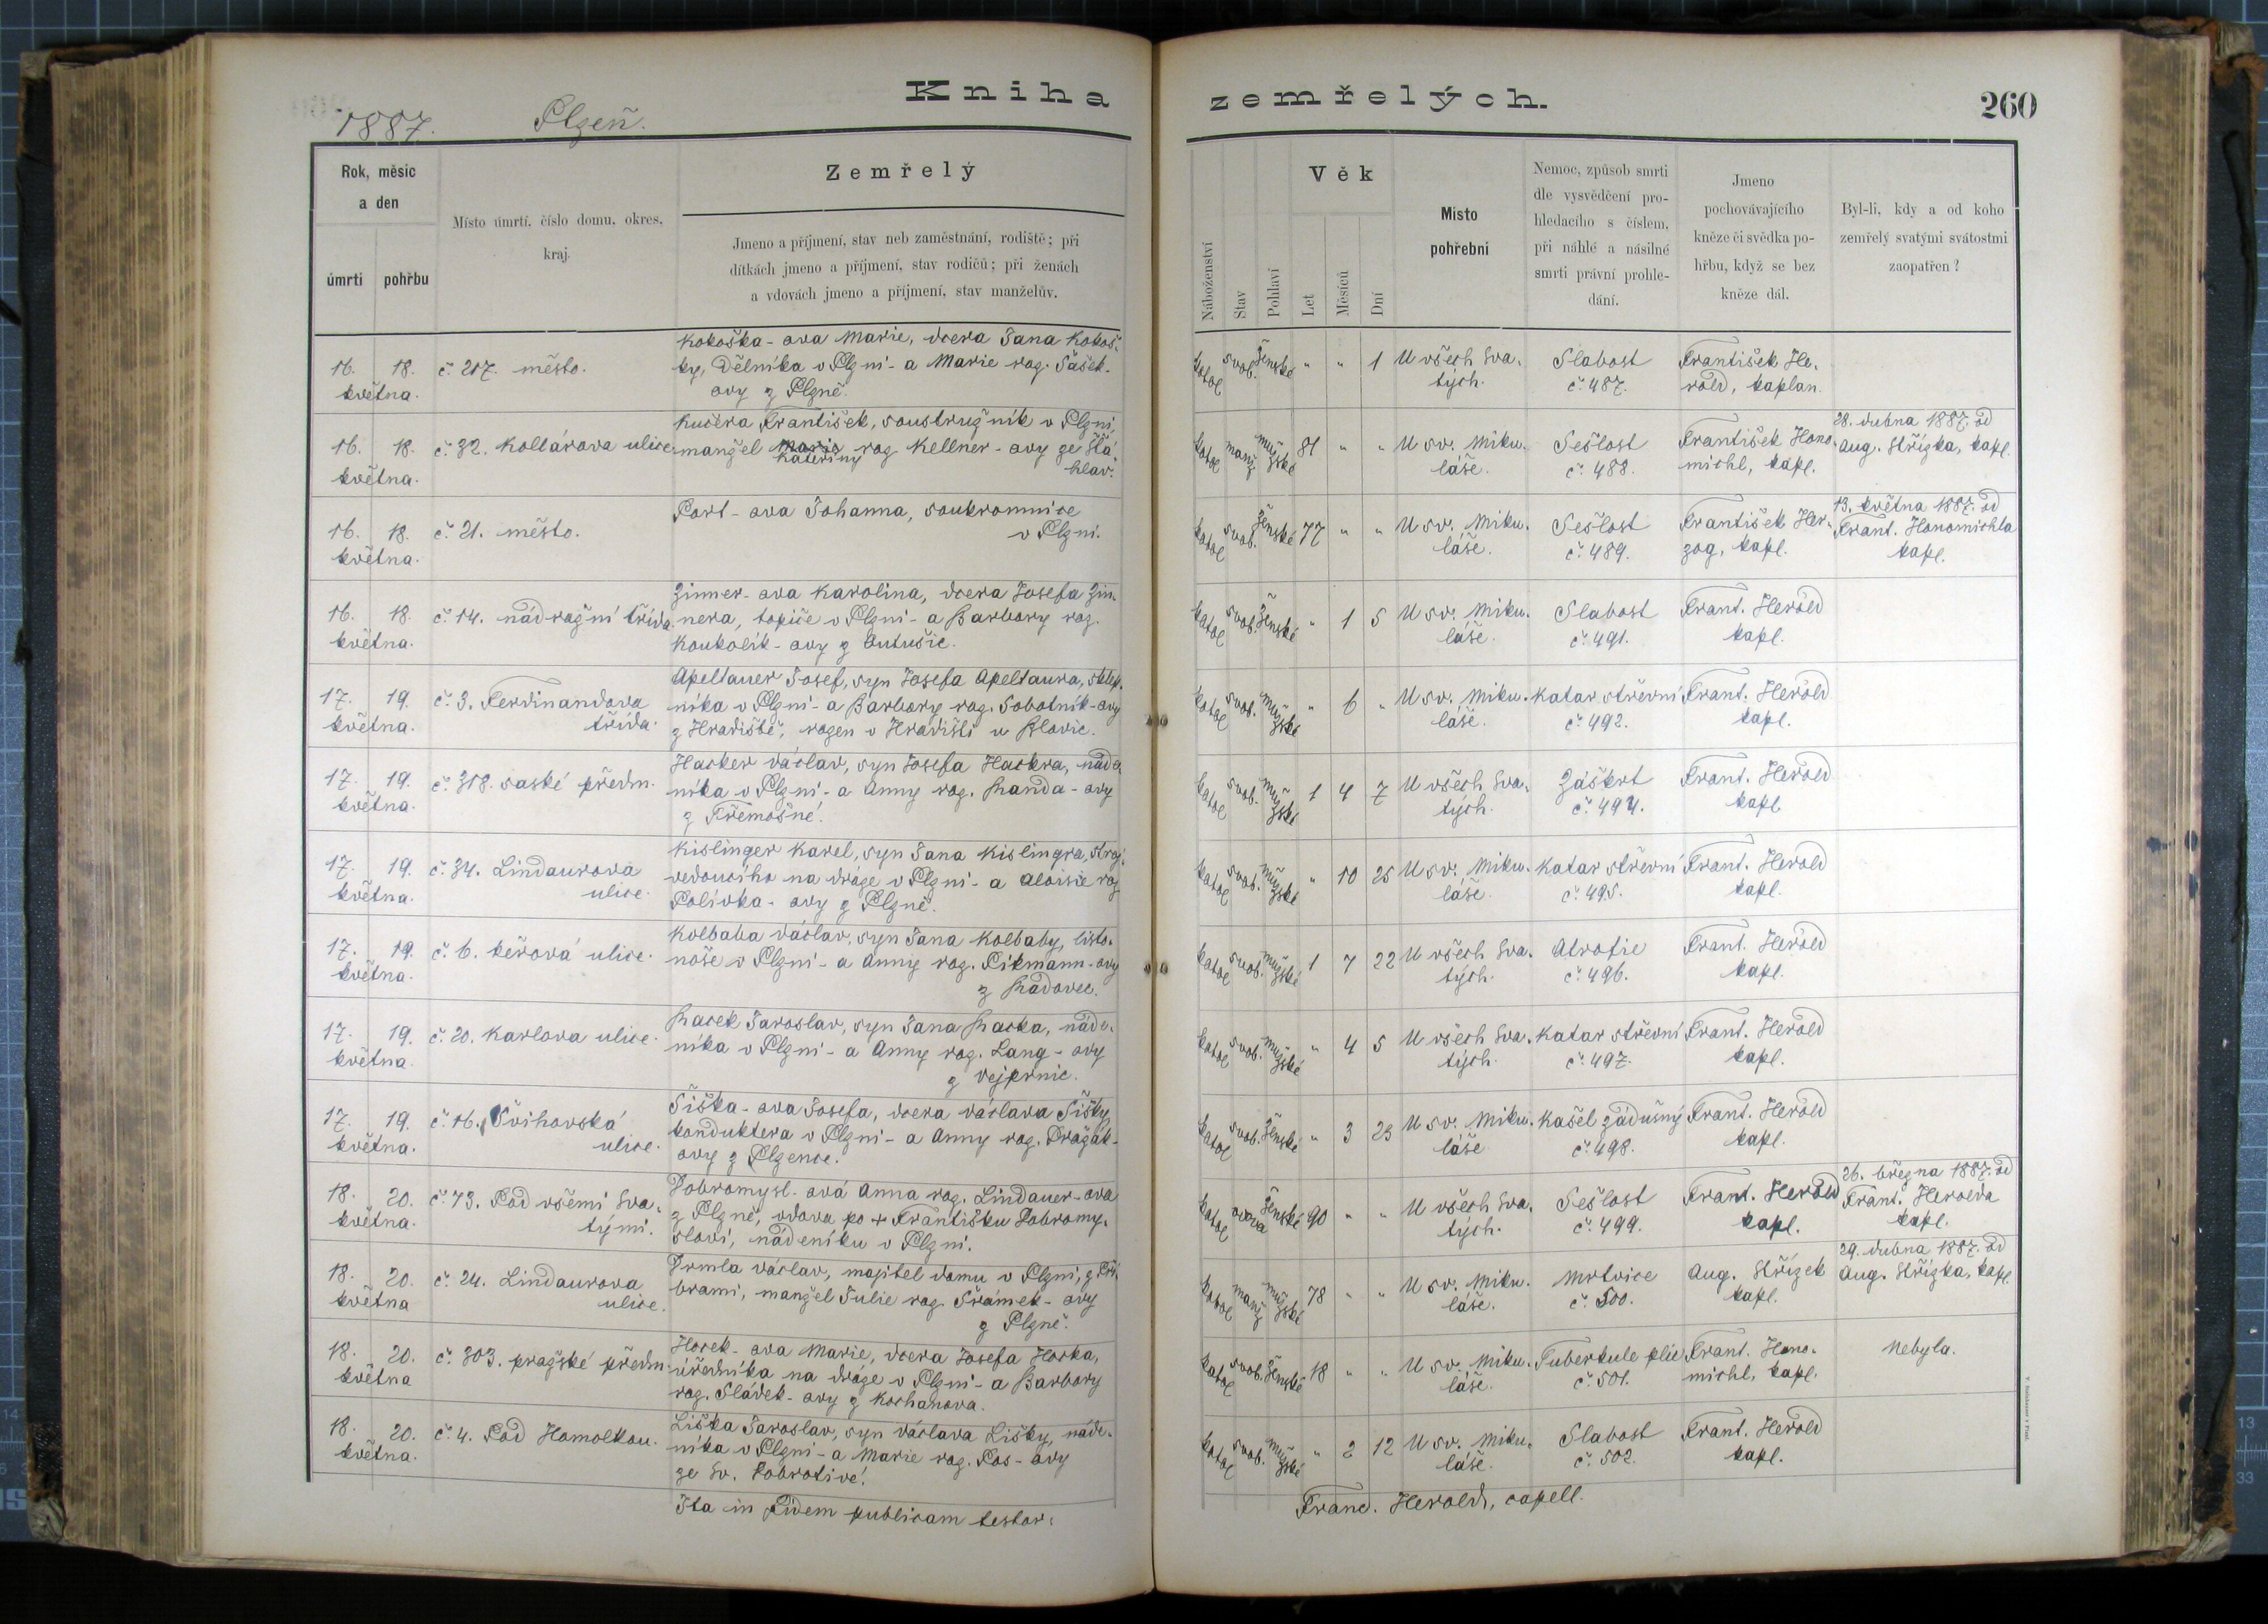 Kniha zemřelých.
260
1887. Plzeň.
Rok, měsíc
a den
úmrtí
pohřbu
Místo úmrtí, číslo domu, okres,
kraj.
Zemřelý
Jmeno a příjmení, stav neb zaměstnání, rodiště; při
dítkách jmeno a příjmení, stav rodičů; při ženách
a vdovách jmeno a příjmení, stav manželův.
Náboženství
Stav
Pohlaví
Věk
Let
Měsíců
Dní
Místo
pohřební
Nemoc, způsob smrti
dle vysvědčení pro-
hledacího s číslem,
při náhlé a násilné
smrti právní prohle-
dání.
Jmeno
pochovávajícího
kněze či svědka po-
hřbu, když se bez
kněze dál.
Byl-li, kdy a od koho
zemřelý svatými svátostmi
zaopatřen?
Kokoška-ova Marie, dcera Jana Kokoš-
16. 18. č. 217. město. ky, dělníka v Plzni - a Marie roz. Sašek-
května. ovy z Plzně.
katol svob. ženské " " 1 U všech Sva- Slabost František He-
tých. č. 487. rold, kaplan.
Kučera František, soustružník v Plzni,
16. 18. č. 32. Kollárova ulice. manžel Marie roz Kellner-ovy ze Há-
května. Kateřiny hlav.
katol manž mužské 81 " " U sv. Miku- Sešlost František Hono- 28. dubna 1887. od
láše. č. 488. michl, kapl. Aug. Střízka, kapl.
Port-ova Johanna, soukromnice
16. 18. č. 21. město. v Plzni.
května.
katol svob. ženské 77 " " U sv. Miku- Sešlost František Her- 13. května 1887. od
láše. č. 489. zog, kapl. Frant. Honomichla
kapl.
Zinner-ova Karolina, dcera Josefa Zin-
16. 18. č. 14. nádražní třída. nera, topiče v Plzni - a Barbory roz.
května. Koukolík-ovy z Lutušic.
katol svob. ženské " 1 5 U sv. Miku- Slabost Frant. Herold
láše. č. 491. kapl.
Apeltauer Josef, syn Josefa Apeltaura, sklep-
17. 19. č. 3. Ferdinandova níka v Plzni - a Barbory roz. Sobotník-ovy
května. třída. z Hradiště, rozen v Hradišti u Blovic.
katol svob. mužské " 6 " U sv. Miku- Katar střevní Frant. Herold
láše. č. 492. kapl.
Hacker Václav, syn Josefa Hackra, náde-
17. 19. č. 318. saské předm. níka v Plzni - a Anny roz. Handa-ovy
května. z Třemošné.
katol svob. mužské 1 4 7 U všech Sva- Záškrt Frant. Herold
tých. č. 494. kapl.
Kislinger Karel, syn Jana Kislingra, stroj-
17. 19. č. 34. Lindaurova vedoucího na dráze v Plzni - a Aloisie roz
května. ulice. Polívka-ovy z Plzně.
katol svob. mužské " 10 25 U sv. Miku- Katar střevní Frant. Herold
láše. č. 495. kapl.
Kolbaba Václav, syn Jana Kolbaby, listo-
17. 19. č. 6. keřová ulice. noše v Plzni - a Anny roz. Pikmann-ovy
května.
katol svob. mužské 1 7 22 U všech Sva- Atrofie Frant. Herold
tých. č. 496. kapl.
Jaroslav, syn Jana náde-
17. 19. č. 20. Karlova ulice. níka v Plzni - a Anny roz. Lang-ovy
května. z Vejprnic.
katol svob. mužské " 4 5 U všech Sva- Katar střevní Frant. Herold
tých. č. 497. kapl.
Šiška-ova Josefa, dcera Václava Šišky,
17. 19. č. 16. Švihovská konduktera v Plzni - a Anny roz. Pražák-
května. ulice. ovy z Plzence.
katol svob. ženské " 3 23 U sv. Miku- Kašel zádušný Frant. Herold
láše. č. 498. kapl.
Dobromysl-ová Anna roz. Lindauer-ova
18. 20. č. 73. Pod všemi Sva- z Plzně, vdova po + Františku Dobromy-
května. tými. slovi, nádeníku v Plzni.
katol vdova ženské 90 " " U všech Sva- Sešlost Frant. Herold 26. března 1887. od
tých. č. 499. kapl. Frant. Herolda
kapl.
Drmla Václav, majitel domu v Plzni, z Pří-
18. 20. č. 24. Lindaurova brami, manžel Julie roz Šrámek-ovy
května ulice. z Plzně.
katol manž mužské 78 " " U sv. Miku- Mrtvice Aug. Střízek 29. dubna 1887. od
láše. č. 500. kapl. Aug. Střízka, kapl
Horek-ova Marie, dcera Josefa Horka,
18. 20. č. 303. pražské předm. úředníka na dráze v Plzni - a Barbory
května roz. Sládek-ovy z Kochanova.
katol svob. ženské 18 " " U sv. Miku- Tuberkule plic Frant. Hono- Nebyla.
láše. č. 501. michl, kapl.
Liška Jaroslav, syn Václava Lišky, náde-
18. 20. č. 4. Pod Homolkou. níka v Plzni - a Marie roz. Pos-ovy
května. ze Sv. Dobrotivé.
katol svob. mužské " 2 12 U sv. Miku- Slabost Frant. Herold
láše. č. 502. kapl.
Ita in fidem publicam testor:
Franc. Herold, capell.